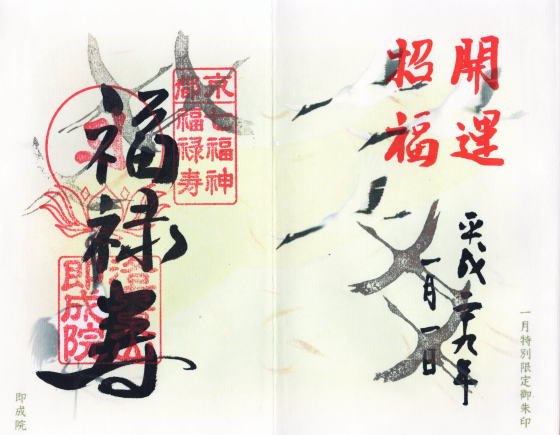 一月特別限定御朱印
開運
招福
平成二九年
一月一日
京都
七福神
福禄寿
福禄寿
即成院
即成院